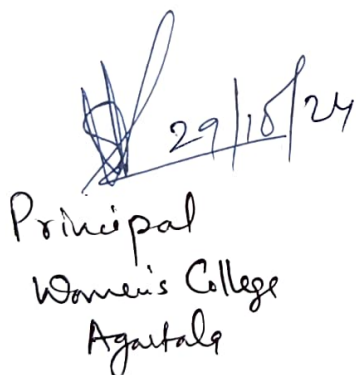 29/10/24
Principal
Women's College
Agartala